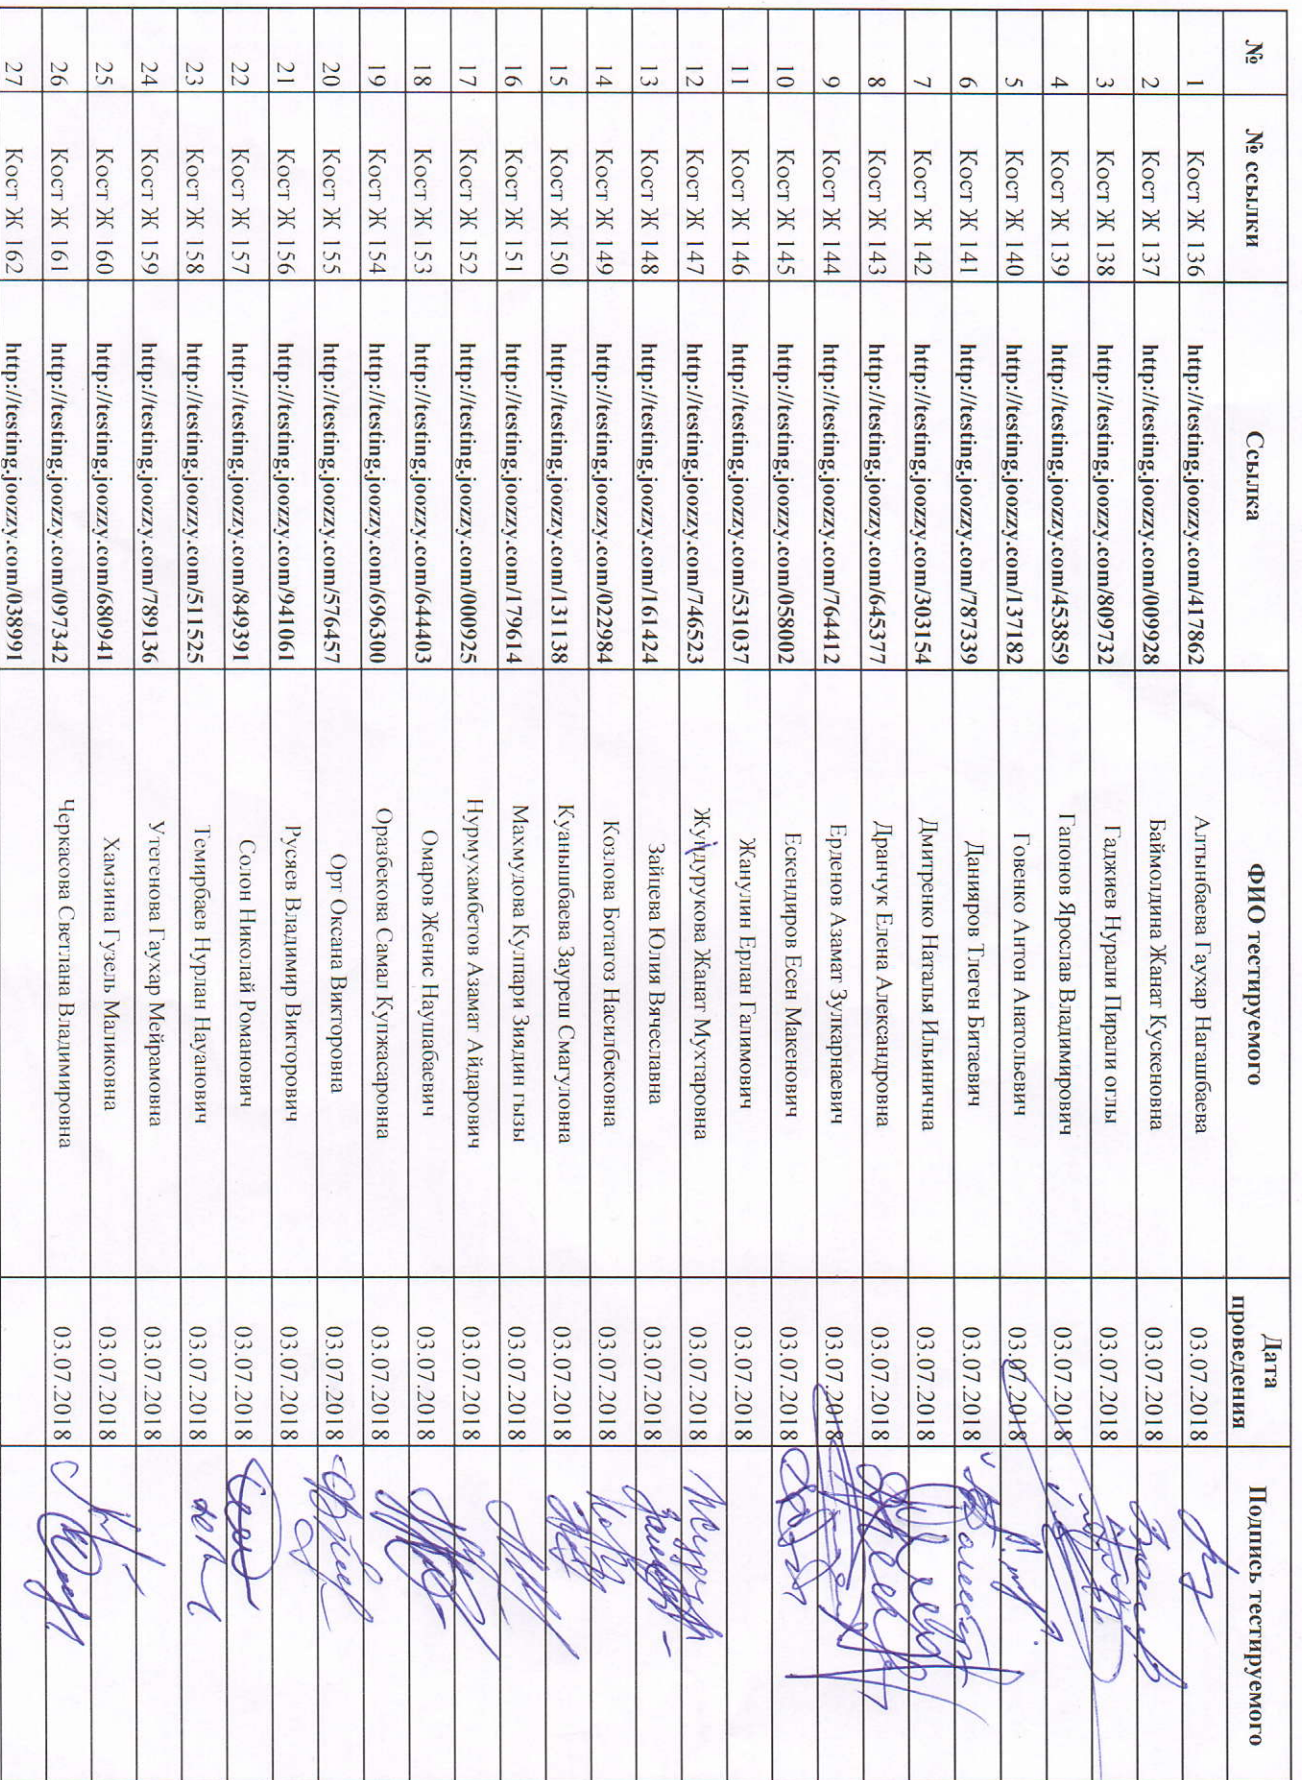 № № ссылки Ссылка ФИО тестируемого Дата проведения Подпись тестируемого
1 Кост Ж 136 http://testing.joozzy.com/417862 Алтынбаева Гаухар Нагашбаева 03.07.2018
2 Кост Ж 137 http://testing.joozzy.com/009928 Баймолдина Жанат Кускеновна 03.07.2018
3 Кост Ж 138 http://testing.joozzy.com/809732 Гаджиев Нурали Пирали оглы 03.07.2018
4 Кост Ж 139 http://testing.joozzy.com/453859 Гапонов Ярослав Владимирович 03.07.2018
5 Кост Ж 140 http://testing.joozzy.com/137182 Говенко Антон Анатольевич 03.07.2018
6 Кост Ж 141 http://testing.joozzy.com/787339 Данияров Тлеген Битаевич 03.07.2018
7 Кост Ж 142 http://testing.joozzy.com/303154 Дмитренко Наталья Ильинична 03.07.2018
8 Кост Ж 143 http://testing.joozzy.com/645377 Дранчук Елена Александровна 03.07.2018
9 Кост Ж 144 http://testing.joozzy.com/764412 Ерденов Азамат Зулкарнаевич 03.07.2018
10 Кост Ж 145 http://testing.joozzy.com/058002 Ескендиров Есен Макенович 03.07.2018
11 Кост Ж 146 http://testing.joozzy.com/531037 Жанулин Ерлан Галимович 03.07.2018
12 Кост Ж 147 http://testing.joozzy.com/746523 Жундурукова Жанат Мухтаровна 03.07.2018
13 Кост Ж 148 http://testing.joozzy.com/161424 Зайцева Юлия Вячеславна 03.07.2018
14 Кост Ж 149 http://testing.joozzy.com/022984 Козлова Ботагоз Насилбековна 03.07.2018
15 Кост Ж 150 http://testing.joozzy.com/131138 Куанышбаева Зауреш Смагуловна 03.07.2018
16 Кост Ж 151 http://testing.joozzy.com/179614 Махмудова Кулпари Зиядин гызы 03.07.2018
17 Кост Ж 152 http://testing.joozzy.com/000925 Нурмухамбетов Азамат Айдарович 03.07.2018
18 Кост Ж 153 http://testing.joozzy.com/644403 Омаров Женис Наушабаевич 03.07.2018
19 Кост Ж 154 http://testing.joozzy.com/696300 Оразбекова Самал Купжасаровна 03.07.2018
20 Кост Ж 155 http://testing.joozzy.com/576457 Орт Оксана Викторовна 03.07.2018
21 Кост Ж 156 http://testing.joozzy.com/941061 Русяев Владимир Викторович 03.07.2018
22 Кост Ж 157 http://testing.joozzy.com/849391 Солон Николай Романович 03.07.2018
23 Кост Ж 158 http://testing.joozzy.com/511525 Темирбаев Нурлан Науанович 03.07.2018
24 Кост Ж 159 http://testing.joozzy.com/789136 Утегенова Гаухар Мейрамовна 03.07.2018
25 Кост Ж 160 http://testing.joozzy.com/680941 Хамзина Гузель Маликовна 03.07.2018
26 Кост Ж 161 http://testing.joozzy.com/097342 Черкасова Светлана Владимировна 03.07.2018
27 Кост Ж 162 http://testing.joozzy.com/038991